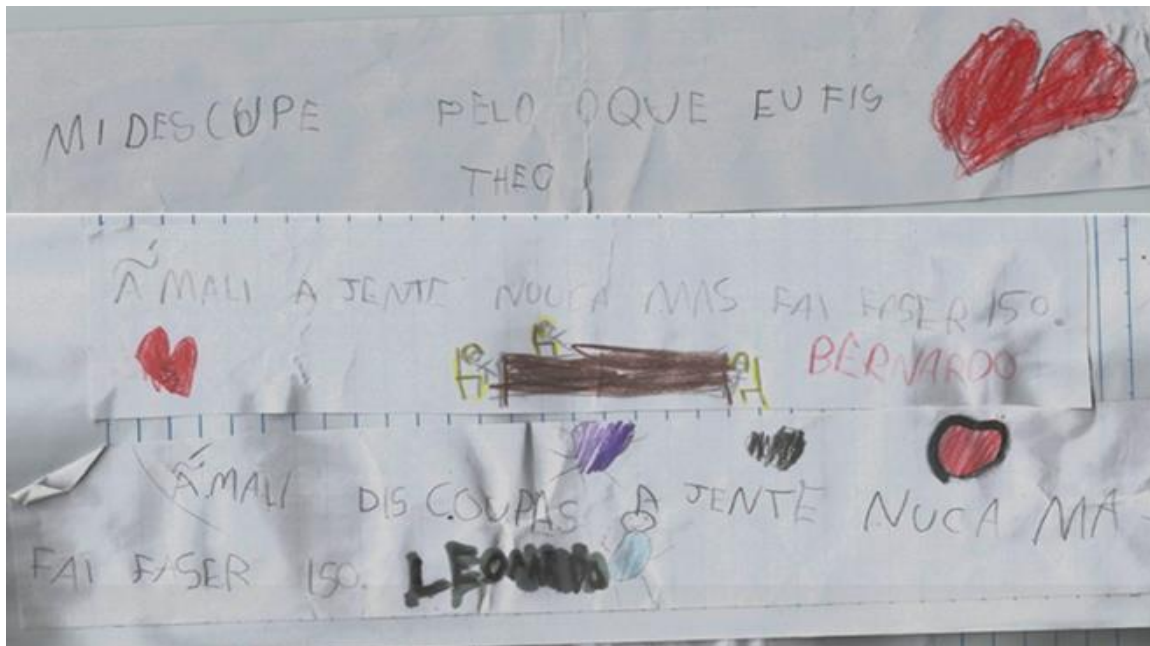 MI DESCUPE PELO OQUE EU FIS
THEO
ÃMALI A JENTE NOUCA MAS FAI FASER 150.
BERNARDO
ÃMALI DISCOUPAS A JENTE NUCA MA
FAI FASER 150. LEONARDO